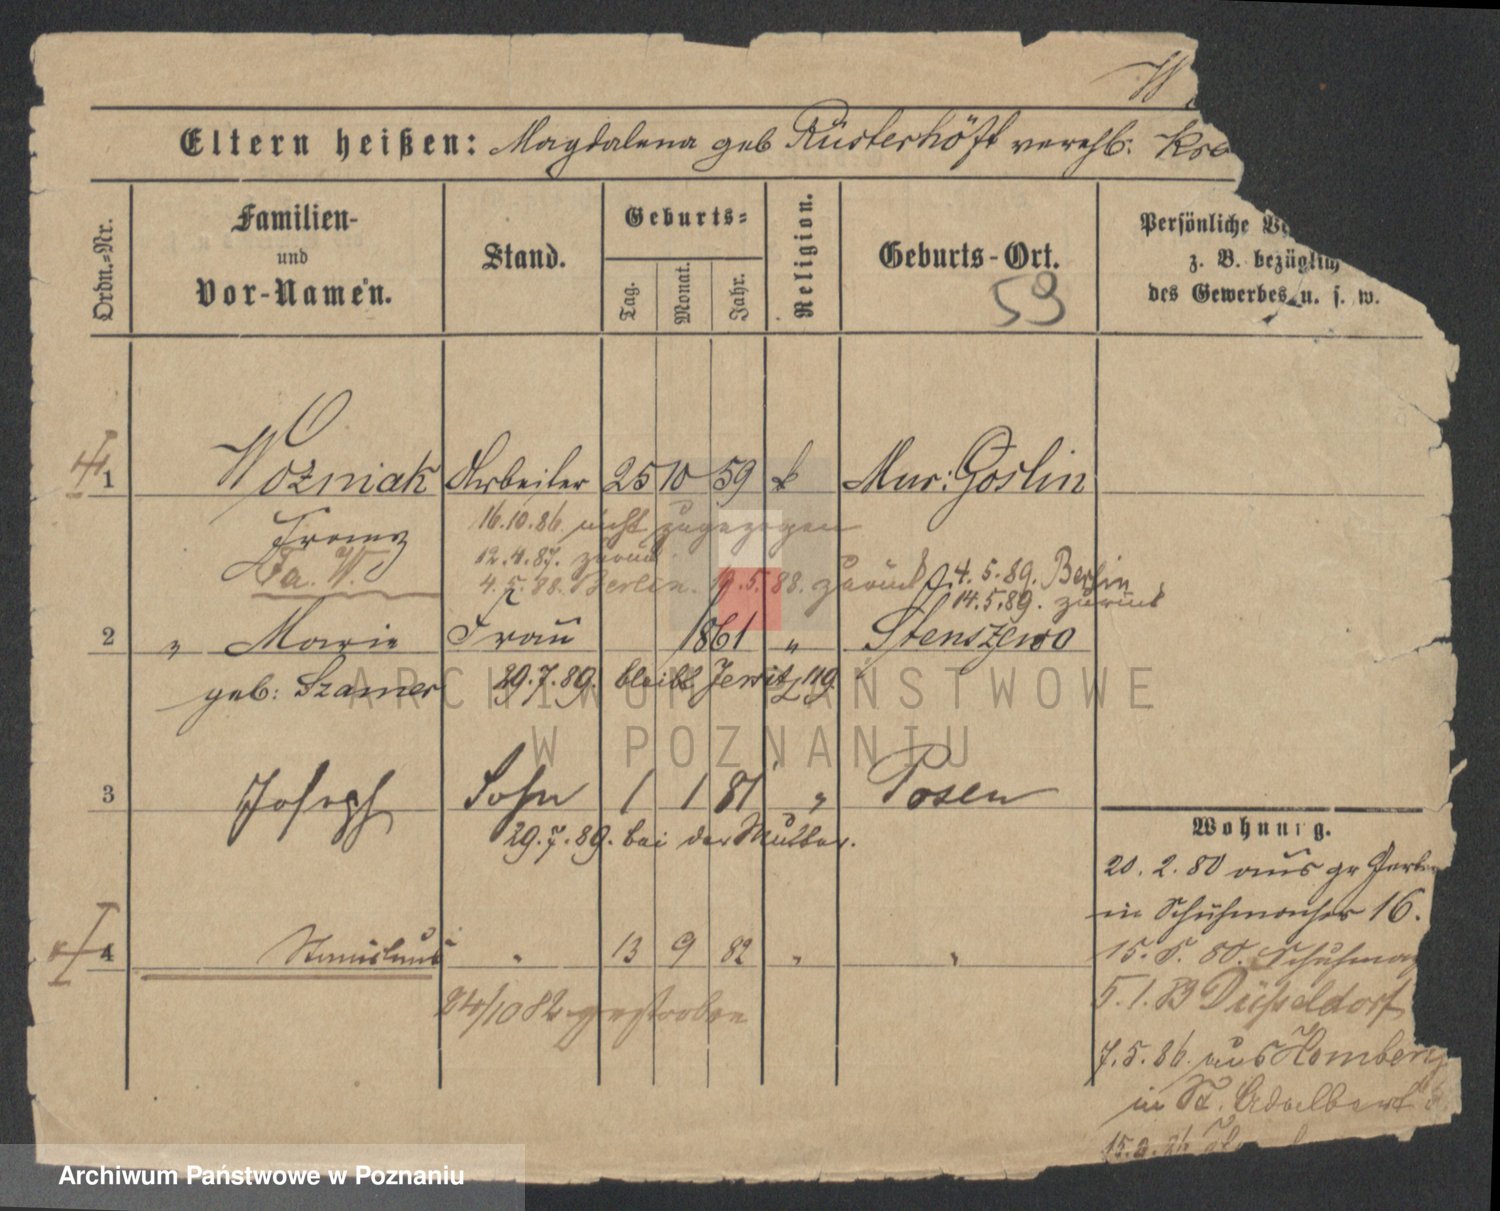 W
Eltern heißen: Magdalena geb Rüsterhöft verehl: Kra
Ordn.-Nr.
Familien-
und
Vor-Namen.
Stand.
Geburts-
Tag.
Monat.
Jahr.
Religion.
Geburts-Ort.
59
Persönliche
z. B. bezüglich
des Gewerbes u. s. w.
1 Wozniak Arbeiter 25 10 59 k Mur: Goslin
Franz 16.10.86 nicht zugezogen
Fa. W. 12.4.87. zurück
4.5.88. Berlin. 19.5.88. zurück 4.5.89. Berlin
14.5.89. zurück
2 " Marie Frau 1861 " Stenszewo
geb: Szamer 29.7.89. bleibt Jersitz 119.
3 Joseph Sohn 1 1 81 " Posen
29.7.89. bei der Mutter.
4 Stanislaus " 13 9 82 " "
24/10 82 gestorben
Wohnung.
20. 2. 80 aus gr Gerber
in Schuhmacher 16.
15. 5. 80. Schuhmac
5. 1. 83 Düsseldorf
7. 5. 86. aus Homberg
in St. Adalbert
ARCHIWUM PAŃSTWOWE
W POZNANIU
Archiwum Państwowe w Poznaniu